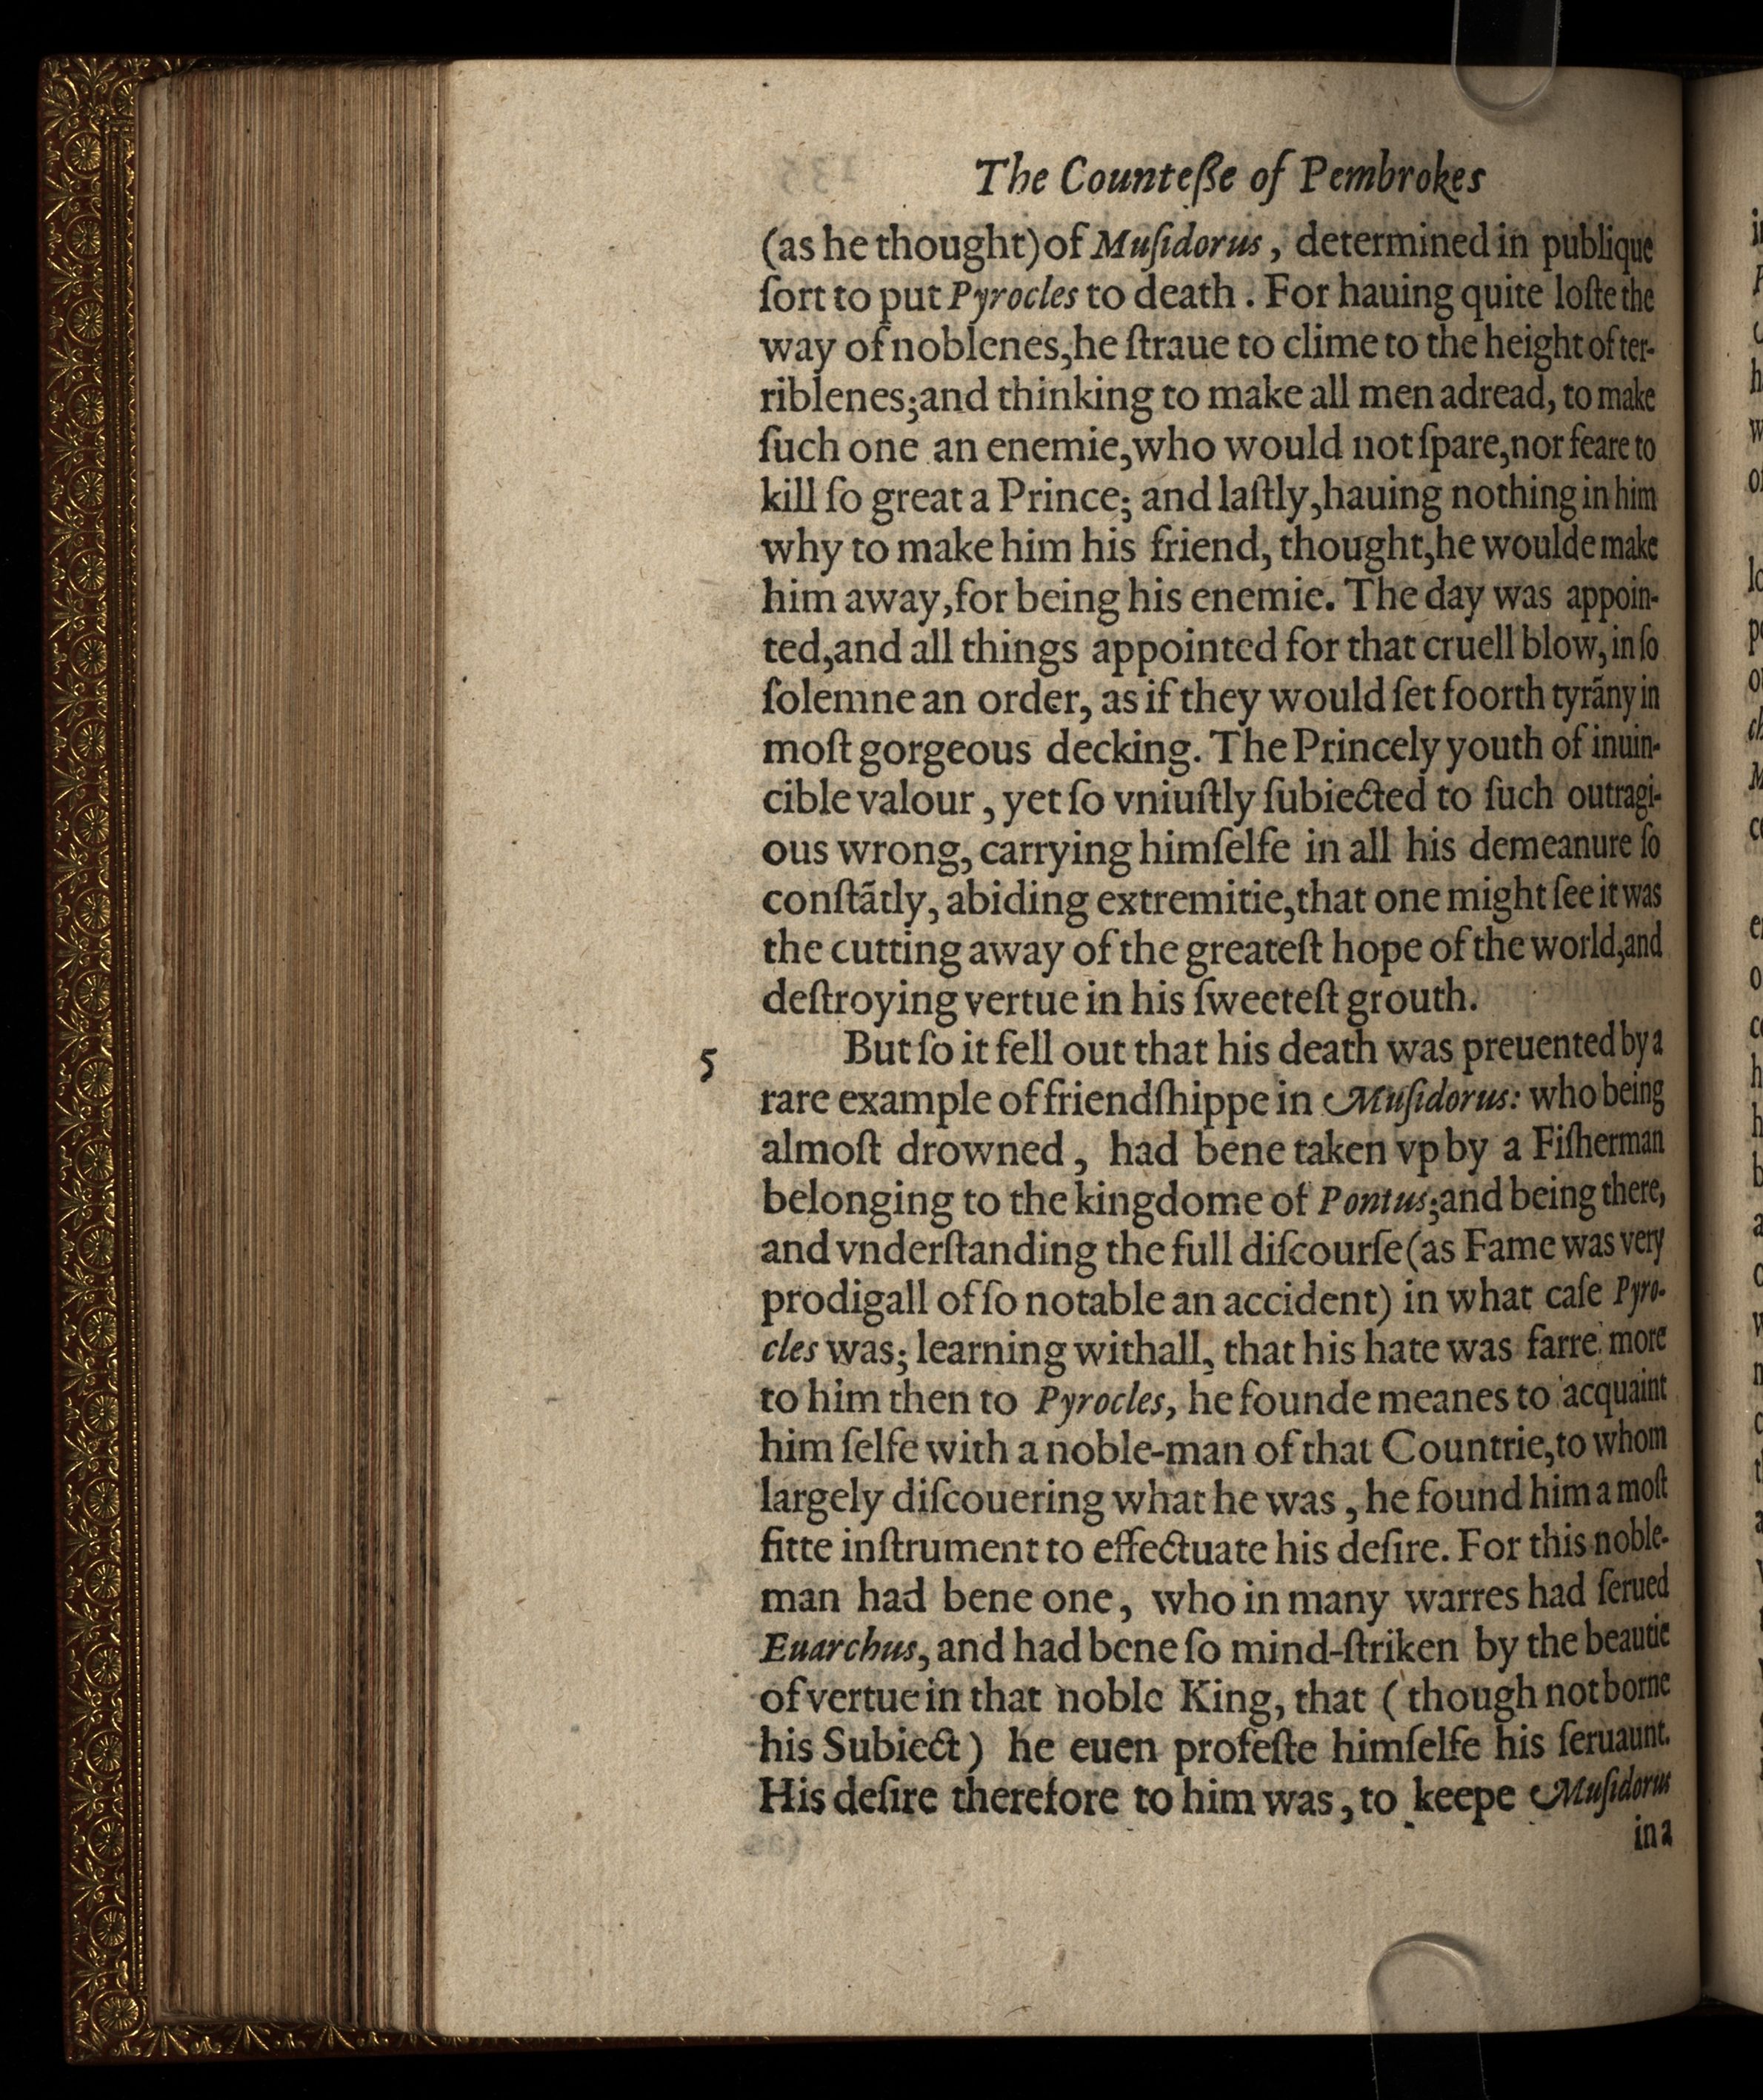 The Counteße of Pembrokes
(as he thought) of Muſidorus, determined in publique
ſort to put Pyrocles to death. For hauing quite loſte the
way of noblenes, he ſtraue to clime to the height of ter-
riblenes; and thinking to make all men adread, to make
ſuch one an enemie, who would not ſpare, nor feare to
kill ſo great a Prince; and laſtly, hauing nothing in him
why to make him his friend, thought, he woulde make
him away, for being his enemie. The day was appoin-
ted, and all things appointed for that cruell blow, in ſo
ſolemne an order, as if they would ſet foorth tyrãny in
moſt gorgeous decking. The Princely youth of inuin-
cible valour, yet ſo vniuſtly ſubiected to ſuch outragi-
ous wrong, carrying himſelfe in all his demeanure ſo
conſtãtly, abiding extremitie, that one might ſee it was
the cutting away of the greateſt hope of the world, and
deſtroying vertue in his ſweeteſt grouth.
5 But ſo it fell out that his death was preuented by a
rare example of friendſhippe in Muſidorus: who being
almoſt drowned, had bene taken vp by a Fiſherman
belonging to the kingdome of Pontus; and being there,
and vnderſtanding the full diſcourſe (as Fame was very
prodigall of ſo notable an accident) in what caſe Pyro-
cles was; learning withall, that his hate was farre more
to him then to Pyrocles, he founde meanes to acquaint
him ſelfe with a noble-man of that Countrie, to whom
largely diſcouering what he was, he found him a moſt
fitte inſtrument to effectuate his deſire. For this noble-
man had bene one, who in many warres had ſerued
Euarchus, and had bene ſo mind-ſtriken by the beautie
of vertue in that noble King, that (though not borne
his Subiect) he euen profeſte himſelfe his ſeruaunt.
His deſire therefore to him was, to keepe Muſidorus
in a